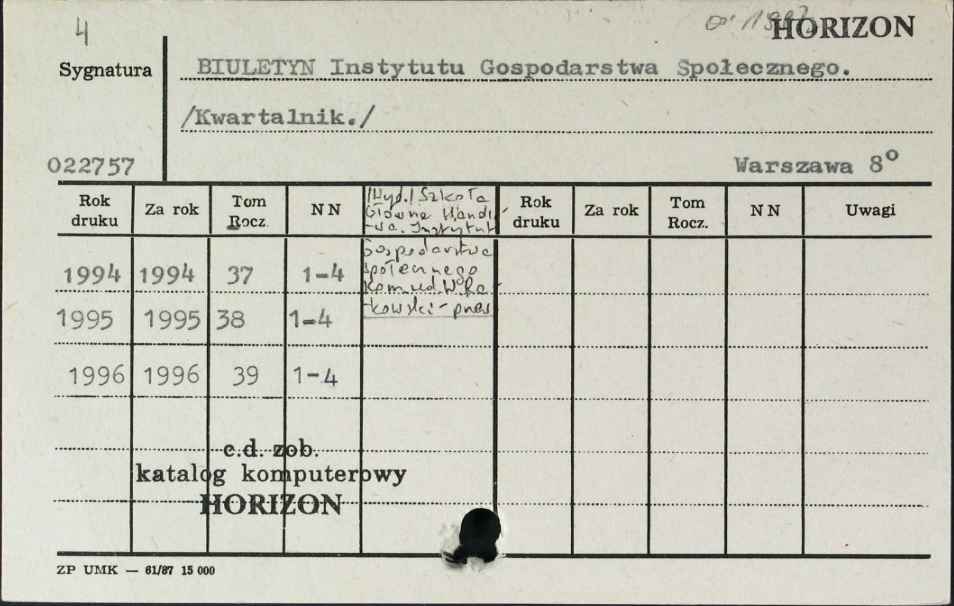 4
1997 HORIZON
Sygnatura
BIULETYN Instytutu Gospodarstwa Społecznego.
/Kwartalnik./
022757
Warszawa 8°
Rok druku Za rok Tom Rocz. NN Rok druku Za rok Tom Rocz. NN Uwagi
/Wyd./ Szkoła
Główna Handl-
-wa. Instytut
Gospodarstwa
Społecznego
Kom.red. W.
-kowski - prze
1994 1994 37 1-4
1995 1995 38 1-4
1996 1996 39 1-4
c.d. zob.
katalog komputerowy
HORIZON
ZP UMK — 61/87 15 000